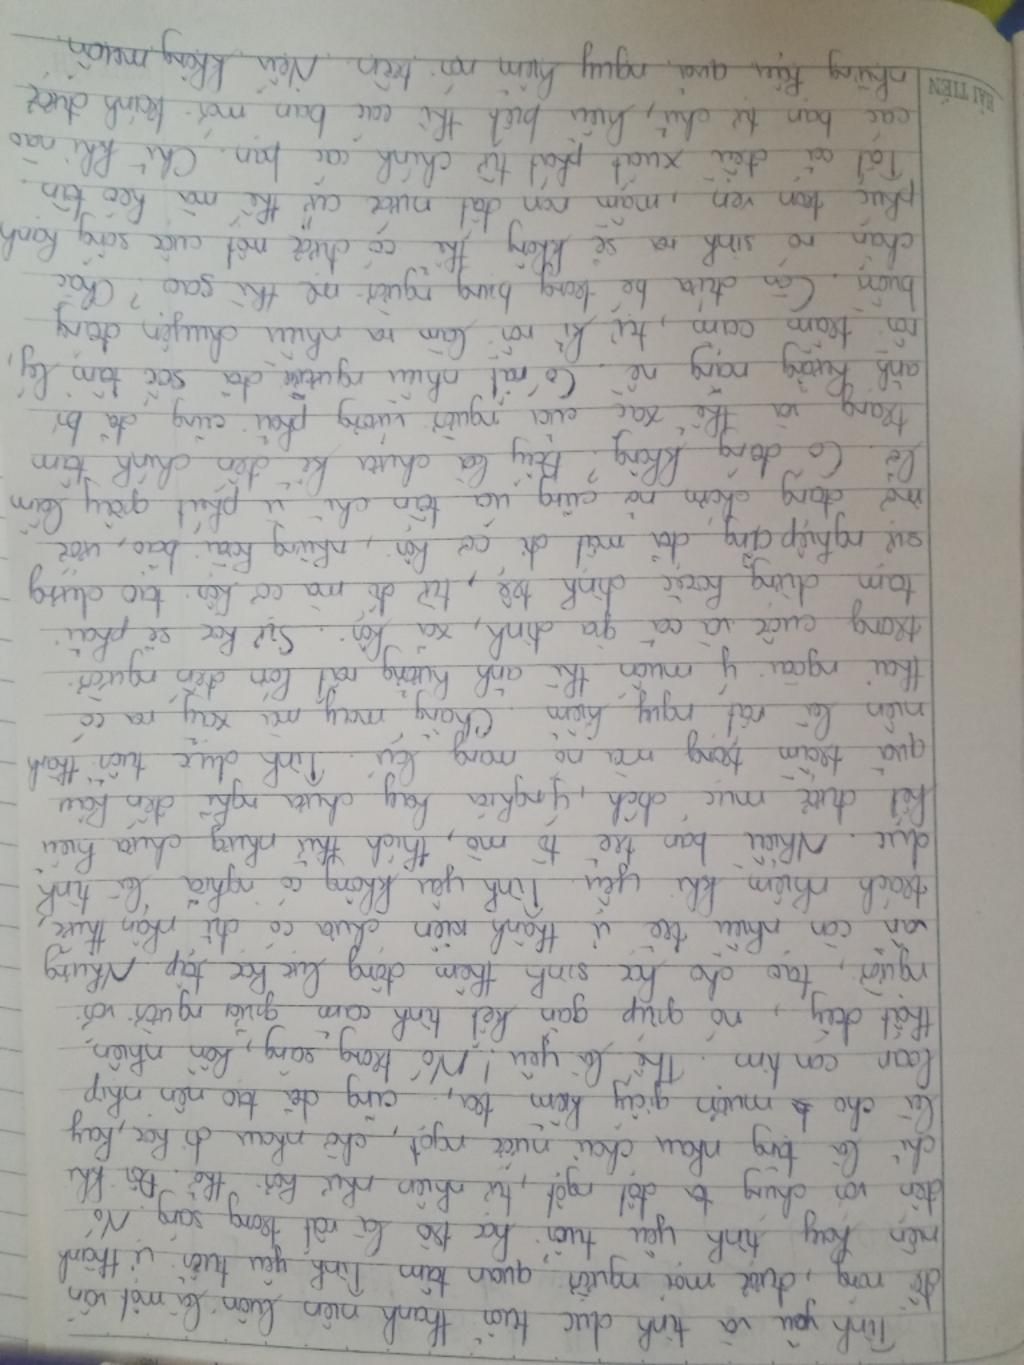 Tình yêu và tình dục tuổi thanh niên luôn là một vấn
đề nóng, được mọi người quan tâm. Tình yêu tuổi vị thành
niên hay tình yêu tuổi học trò là rất trong sáng. Nó
đến với chúng ta đột ngột, tự nhiên như hơi thở. Đôi khi
chỉ là tặng nhau chai nước ngọt, chở nhau đi học, hay
là cho mượn giấy kiểm tra, cũng đã tạo nên nhịp
loạn con tim. Thế là yêu! Nó trong sáng, hồn nhiên,
thật đấy, nó giúp gắn kết tình cảm giữa người với
người, tạo cho học sinh thêm động lực học tập. Nhưng
vẫn còn nhiều trẻ vị thành niên chưa có đủ nhận thức,
trách nhiệm khi yêu. Tình yêu không có nghĩa là tình
dục. Nhiều bạn trẻ tò mò, thích thú nhưng chưa hiểu
hết được mục đích, ý nghĩa hay chưa nghĩ đến hậu
quả trầm trọng mà nó mang lại. Tình dục tuổi thành
niên là rất nguy hiểm. Chẳng may mà xảy ra có
thai ngoài ý muốn thì ảnh hưởng rất lớn đến người
trong cuộc và cả gia đình, xã hội. Sự học sẽ phải
tạm dừng hoặc đình trệ, từ đó mà cơ hội tạo dựng
sự nghiệp cũng dần mất đi cơ hội, những hoài bão, ước
mơ đang chớm nở cũng úa tàn chỉ vì phút giây lầm
lỡ. Có đáng không? Đấy là chưa kể đến chính tâm
trạng và thể xác của người vướng phải cũng đã bị
ảnh hưởng nặng nề. Có rất nhiều người đã sốc tâm lý,
rồi trầm cảm, tự kỉ rồi làm ra nhiều chuyện đáng
buồn. Còn đứa bé trong bụng người mẹ thì sao? Chắc
chắn nó sinh ra sẽ không thể có được một cuộc sống hạnh
phúc toàn vẹn, mầm non đất nước cứ thế mà héo tàn.
Tất cả đều xuất phát từ chính các bạn. Chỉ khi nào
các bạn tự chủ, hiểu biết thì các bạn mới tránh được
những hậu quả nguy hiểm nói trên. Nếu không muốn
HẢI TIẾN